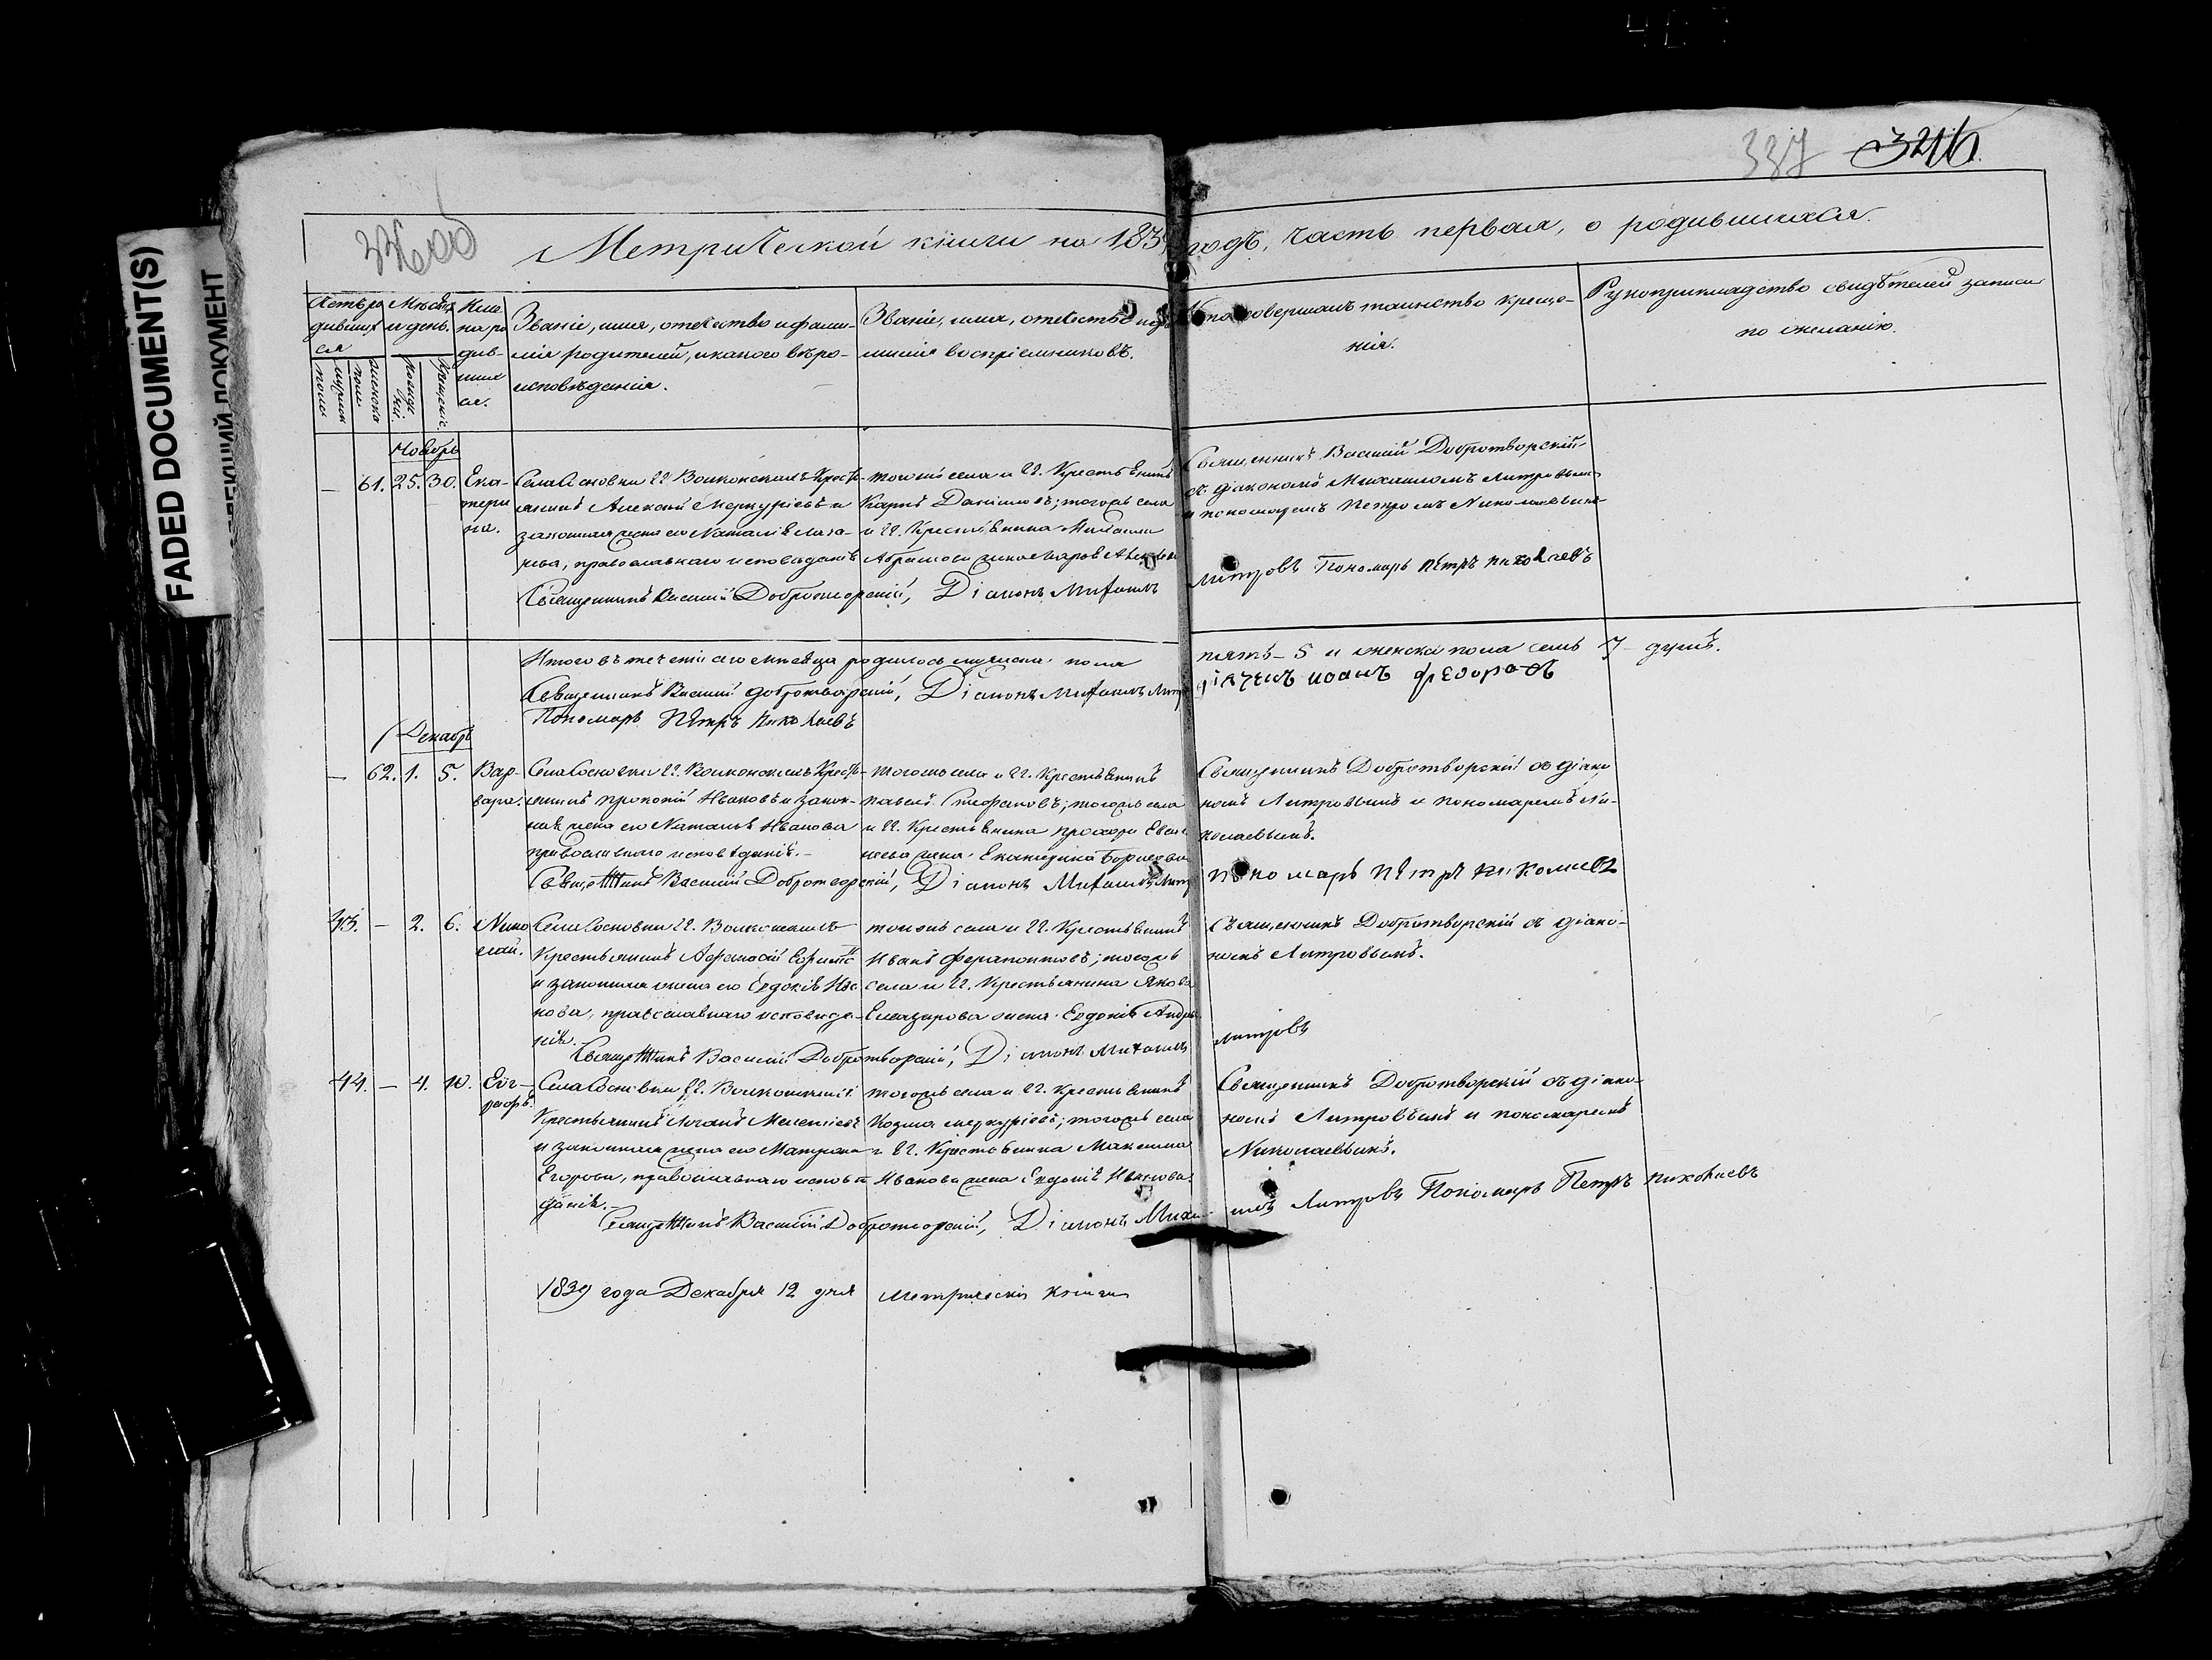 FADED DOCUMENT(S)
337 346
Метрической книги на 183 годъ, часть первая, о родившихся.
Звание, имя, отечество и фами-
лія родителей, и какого вѣро-
исповѣданія.
Званіе, имя, отечество и
милія воспріемниковъ.
Кто совершалъ таинство креще-
нія.
Рукоприкладство свидѣтелей записи
по желанію.
Ноябрь
— 61. 25. 30. Ека-
тери
на.
Села Сосновки гг. Волконскихъ Кресть-
янинъ Алексей Меркурьевъ и
законная жена его Наталія
православнаго исповеданія
Священникъ Василій Добротворскій, Діаконъ Михаилъ
тогожъ села и гг. Крестьянинъ
Карпъ Даниловъ; тогожъ села
и гг. Крестьянина
Священникъ Василій Добротворскій
съ діакономъ Михаиломъ Литровымъ
и пономаремъ Петромъ Николаевымъ
Литровъ Пономарь Петръ Николаевъ
Итого въ теченіи сего месяца родилось мужеска пола
пять - 5 и женска пола семь 7 душъ.
Священникъ Василій Добротворскій, Діаконъ Михаилъ
дьячекъ иоанъ федоровъ
Пономарь Петръ Николаевъ
Декабрь
— 62. 1. 5. Вар-
вара.
Села Сосновки гг. Волконскихъ Кресть-
янинъ Прокопій Ивановъ и закон-
ная жена его Наталья Иванова
православнаго исповѣданія.-
Священникъ Василій Добротворскій, Діаконъ Михаилъ
тогожъ села и гг. Крестьянинъ
Павелъ Стефановъ; тогожъ села
и гг. Крестьянина Прохора
жена Екатерина Борисова
Священникъ Добротворскій съ діако
номъ Литровымъ и пономаремъ Ни-
колаевымъ.
Пономарь Петръ Николаевъ
43. — 2. 6. Нико
лай.
Села Сосновки гг. Волконскихъ
Крестьянинъ Афанасій
и законная жена его Евдокія Ива
нова, православнаго исповѣда-
нія.
Священникъ Василій Добротворскій, Діаконъ Михаилъ
тогожъ села и гг. Крестьянинъ
Иванъ Ферапонтовъ; тогожъ
села и гг. Крестьянина Якова
Елеазарова жена Евдокія
Священникъ Добротворскій съ діако-
номъ Литровымъ.
Литровъ
44. — 4. 10. Евг-
рафъ.
Села Сосновки гг. Волконскихъ
Крестьянинъ
и законная жена его Матрона
Егорова, православнаго исповѣ
данія.
Священникъ Василій Добротворскій, Діаконъ Михаи
тогожъ села и гг. Крестьянинъ
Козма Меркурьевъ; тогожъ села
и гг. Крестьянина Максима
Иванова жена Евдокія Иванова.
Священникъ Добротворскій съ діако-
номъ Литровымъ и пономаремъ
Николаевымъ.
илъ Литровъ Пономарь Петръ Николаевъ
1839 года Декабря 12 дня Метрическія книги